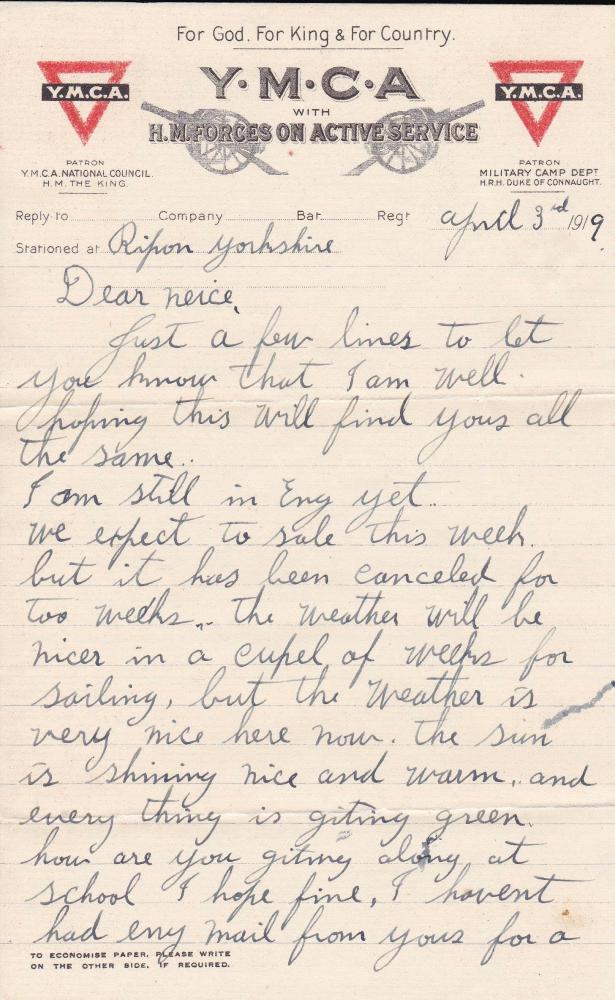 For God. For King & For Country.
Y·M·C·A
WITH
H.M. FORCES ON ACTIVE SERVICE
Y.M.C.A.
Y.M.C.A.
PATRON
Y.M.C.A. NATIONAL COUNCIL.
H.M. THE KING.
PATRON
MILITARY CAMP DEPT
H.R.H. DUKE OF CONNAUGHT.
Reply to Company Bat Regt april 3rd 1919
Stationed at Ripon yorkshire
Dear neice,
Just a few lines to let
you know that I am well.
hoping this will find yous all
the same.
I am still in Eng yet.
we expect to sale this week.
but it has been canceled for
too weeks.. the weather will be
nicer in a cupel of weeks for
sailing, but the weather is
very nice here now. the sun
is shining nice and warm, and
every thing is giting green.
how are you giting along at
school I hope fine, I havent
had eny mail from yous for a
TO ECONOMISE PAPER, PLEASE WRITE
ON THE OTHER SIDE, IF REQUIRED.